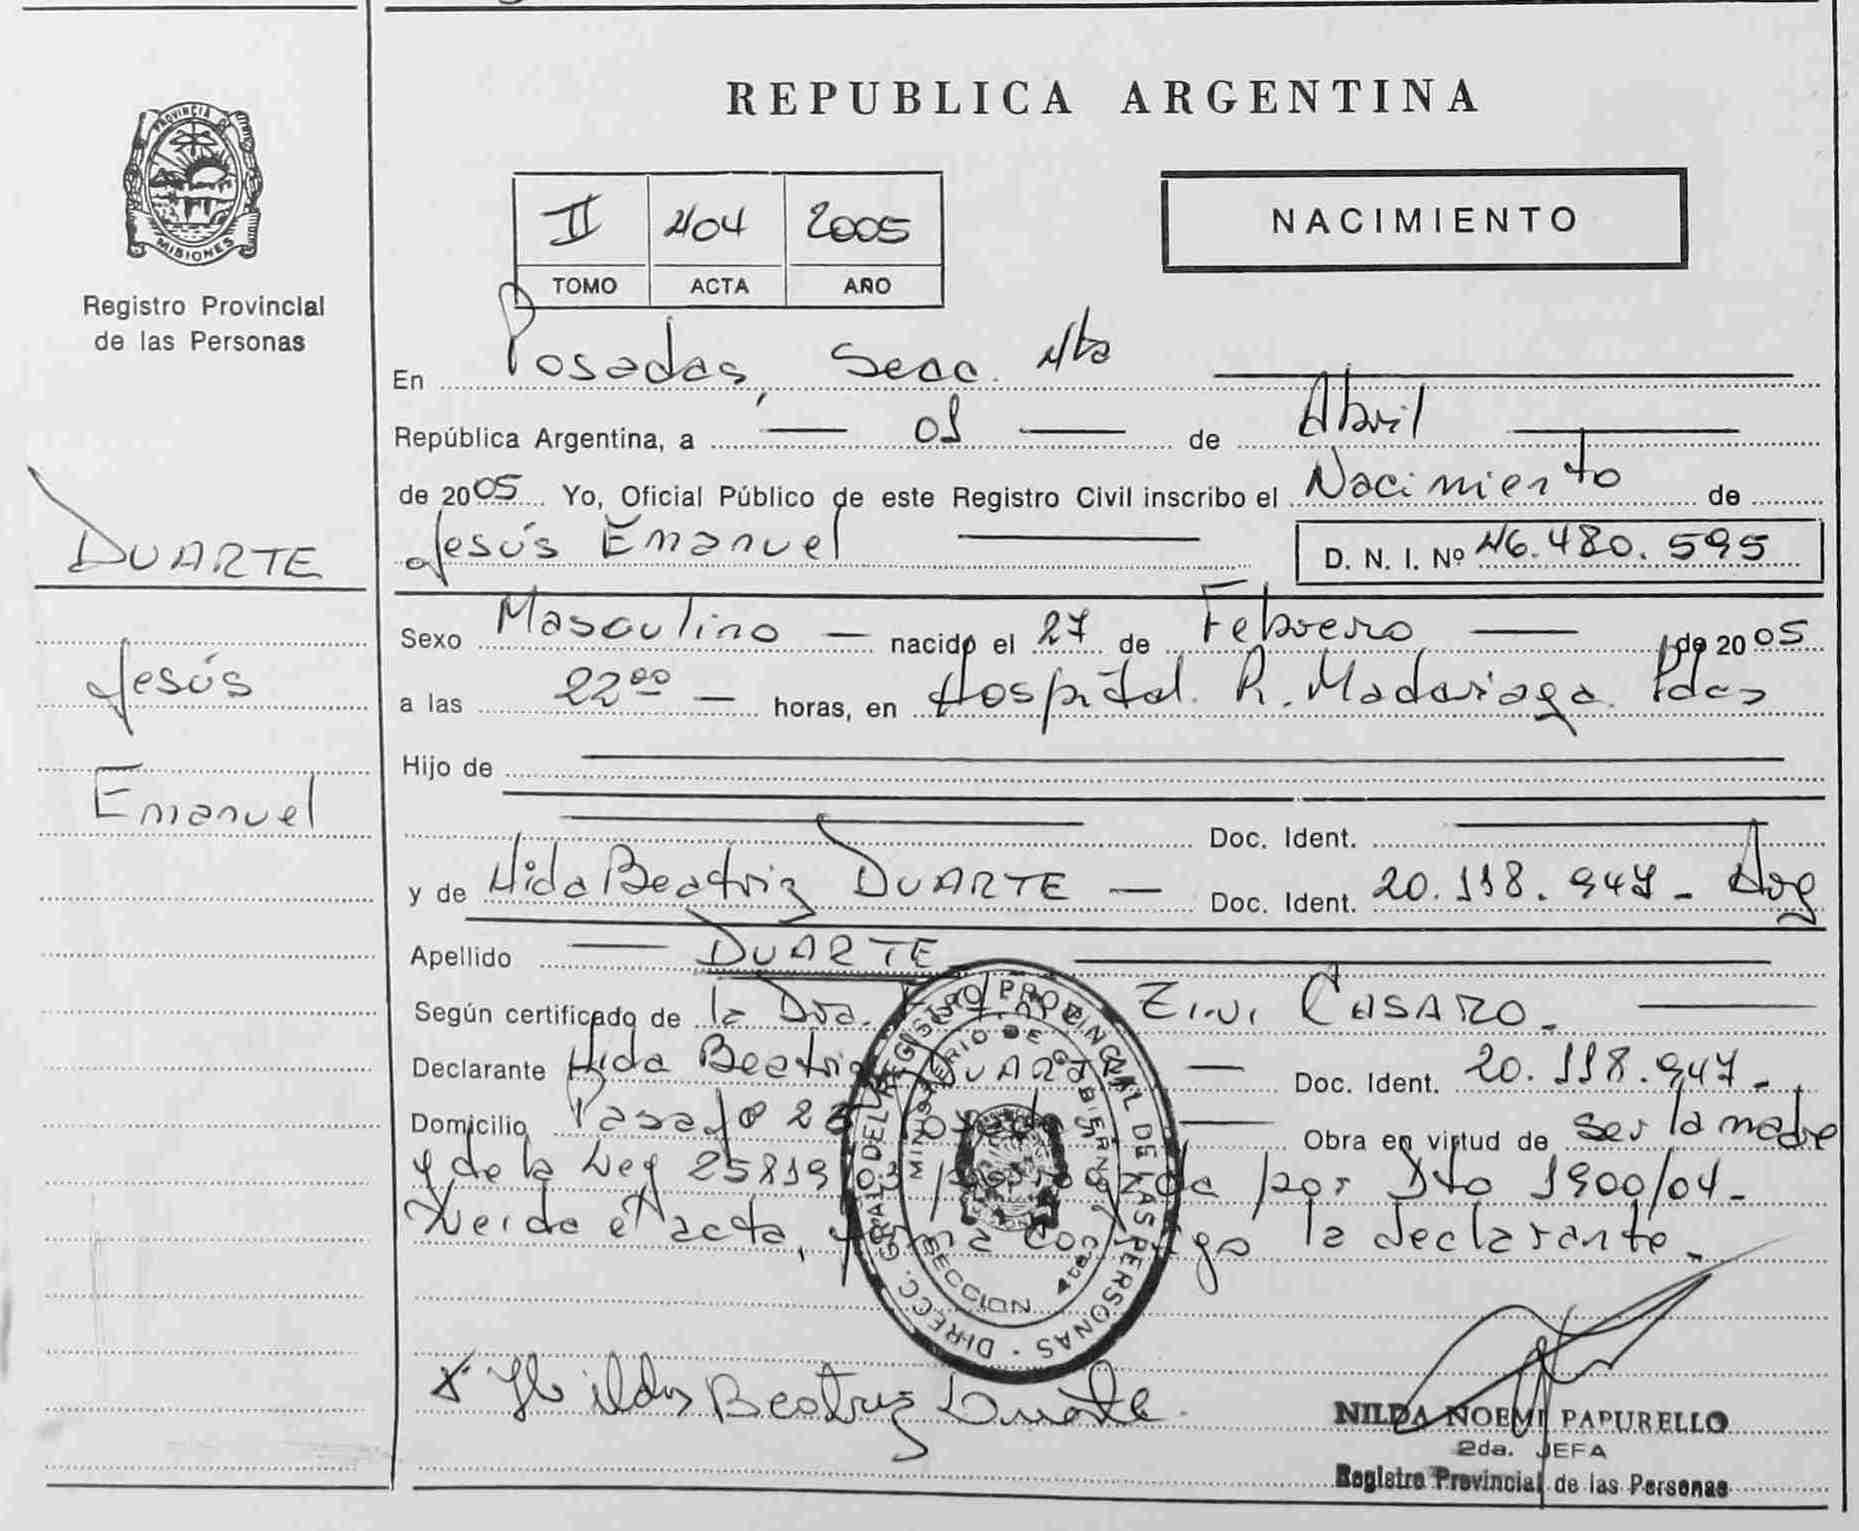 PROVINCIA DE
MISIONES
Registro Provincial
de las Personas
DUARTE
Jesús
Emanuel
REPUBLICA ARGENTINA
II 404 2005
TOMO ACTA AÑO
NACIMIENTO
En Posadas, Secc. 4ta
República Argentina, a 01 de Abril
de 2005 Yo, Oficial Público de este Registro Civil inscribo el Nacimiento de
Jesús Emanuel D. N. I. Nº 46.480.595
Sexo Masculino nacido el 27 de Febrero de 2005
a las 22⁰⁰ horas, en Hospital R. Madariaga. Pdas
Hijo de
Doc. Ident.
y de Hida Beatriz DUARTE Doc. Ident. 20.118.947 - Arg
Apellido DUARTE
Según certificado de la Dra. CASARO.
Declarante Hida Beatriz DUARTE Doc. Ident. 20.118.947 -
Domicilio Pasaje Obra en virtud de ser la madre
y de la Ley 25819 por Dto 1900/04 -
Leida el acta, la declarante.
DIRECC. GRAL. DEL REGISTRO PROVINCIAL DE LAS PERSONAS
MINISTERIO DE GOBIERNO
SECCION 4ta.
Hilda Beatriz Duarte
NILDA NOEMI PAPURELLO
2da. JEFA
Registro Provincial de las Personas